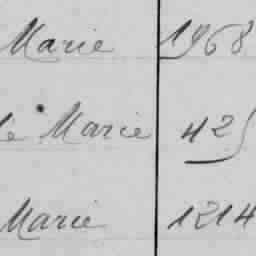 Marie 1968
le Marie 425
Marie 1214